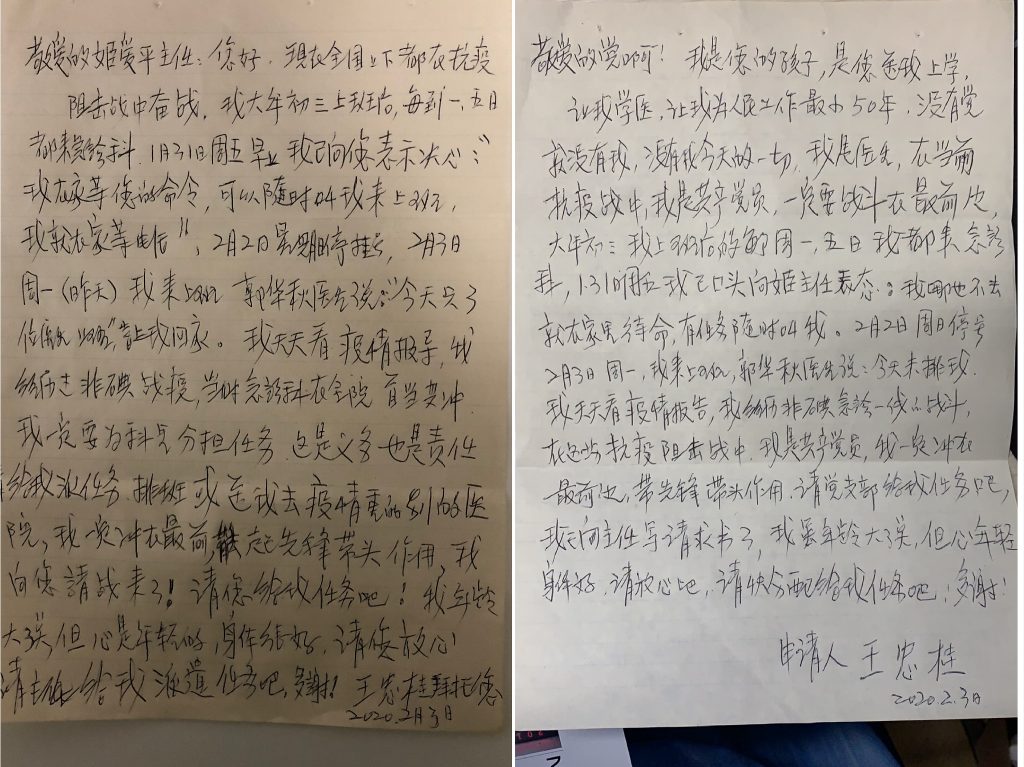 敬爱的姬爱平主任：您好，现在全国上下都在抗疫
阻击战中奋战，我大年初三上班后，每到一、五日
都来急诊科，1月31日周五早上我已向您表示决心："
我在家等您的命令，可以随时叫我来上班，
我就在家等电话"，2月2日星期日停挂号，2月3日
周一（昨天）我来上班 郭华秋医生说："今天只3
位医生 让我回家。我天天看疫情报导，我
经历过非碘战疫，当时急诊科在全院首当其冲
我一定要为科室分担任务 这是义务也是责任
给我派任务 排班 或送我去疫情重的别的医
院，我一定冲在最前 起先锋带头作用，我
向您請战来了！请您给我任务吧！我年龄
大了些但心是年轻的，身体结好，请您放心
请主任给我派遣任务吧，多謝！王忠桂拜托您
2020.2月3日
敬爱的党啊！我是您的孩子，是您送我上学，
让我学医，让我为人民工作最少50年，没有党
就没有我，没有我今天的一切，我是医生，在当前
抗疫战中，我是共产党员，一定要战斗在最前边，
大年初三我上班后的每周一，五日我都来急診
科，1.31周五我已口头向姬主任表态：我哪也不去
就在家里待命，有任务随时叫我。2月2日周日停号
2月3日周一，我来上班，郭华秋医生说：今天未排我.
我天天看疫情报告，我经历非碘急診一线的战斗，
在这场抗疫阻击战中，我是共产党员，我一定冲在
最前边，带先锋带头作用，请党支部给我任务吧，
我已向主任写请求书了，我虽年龄大些，但心年轻
身体好，请放心吧，请快分配给我任务吧，多謝！
申请人 王忠桂
2020.2.3日